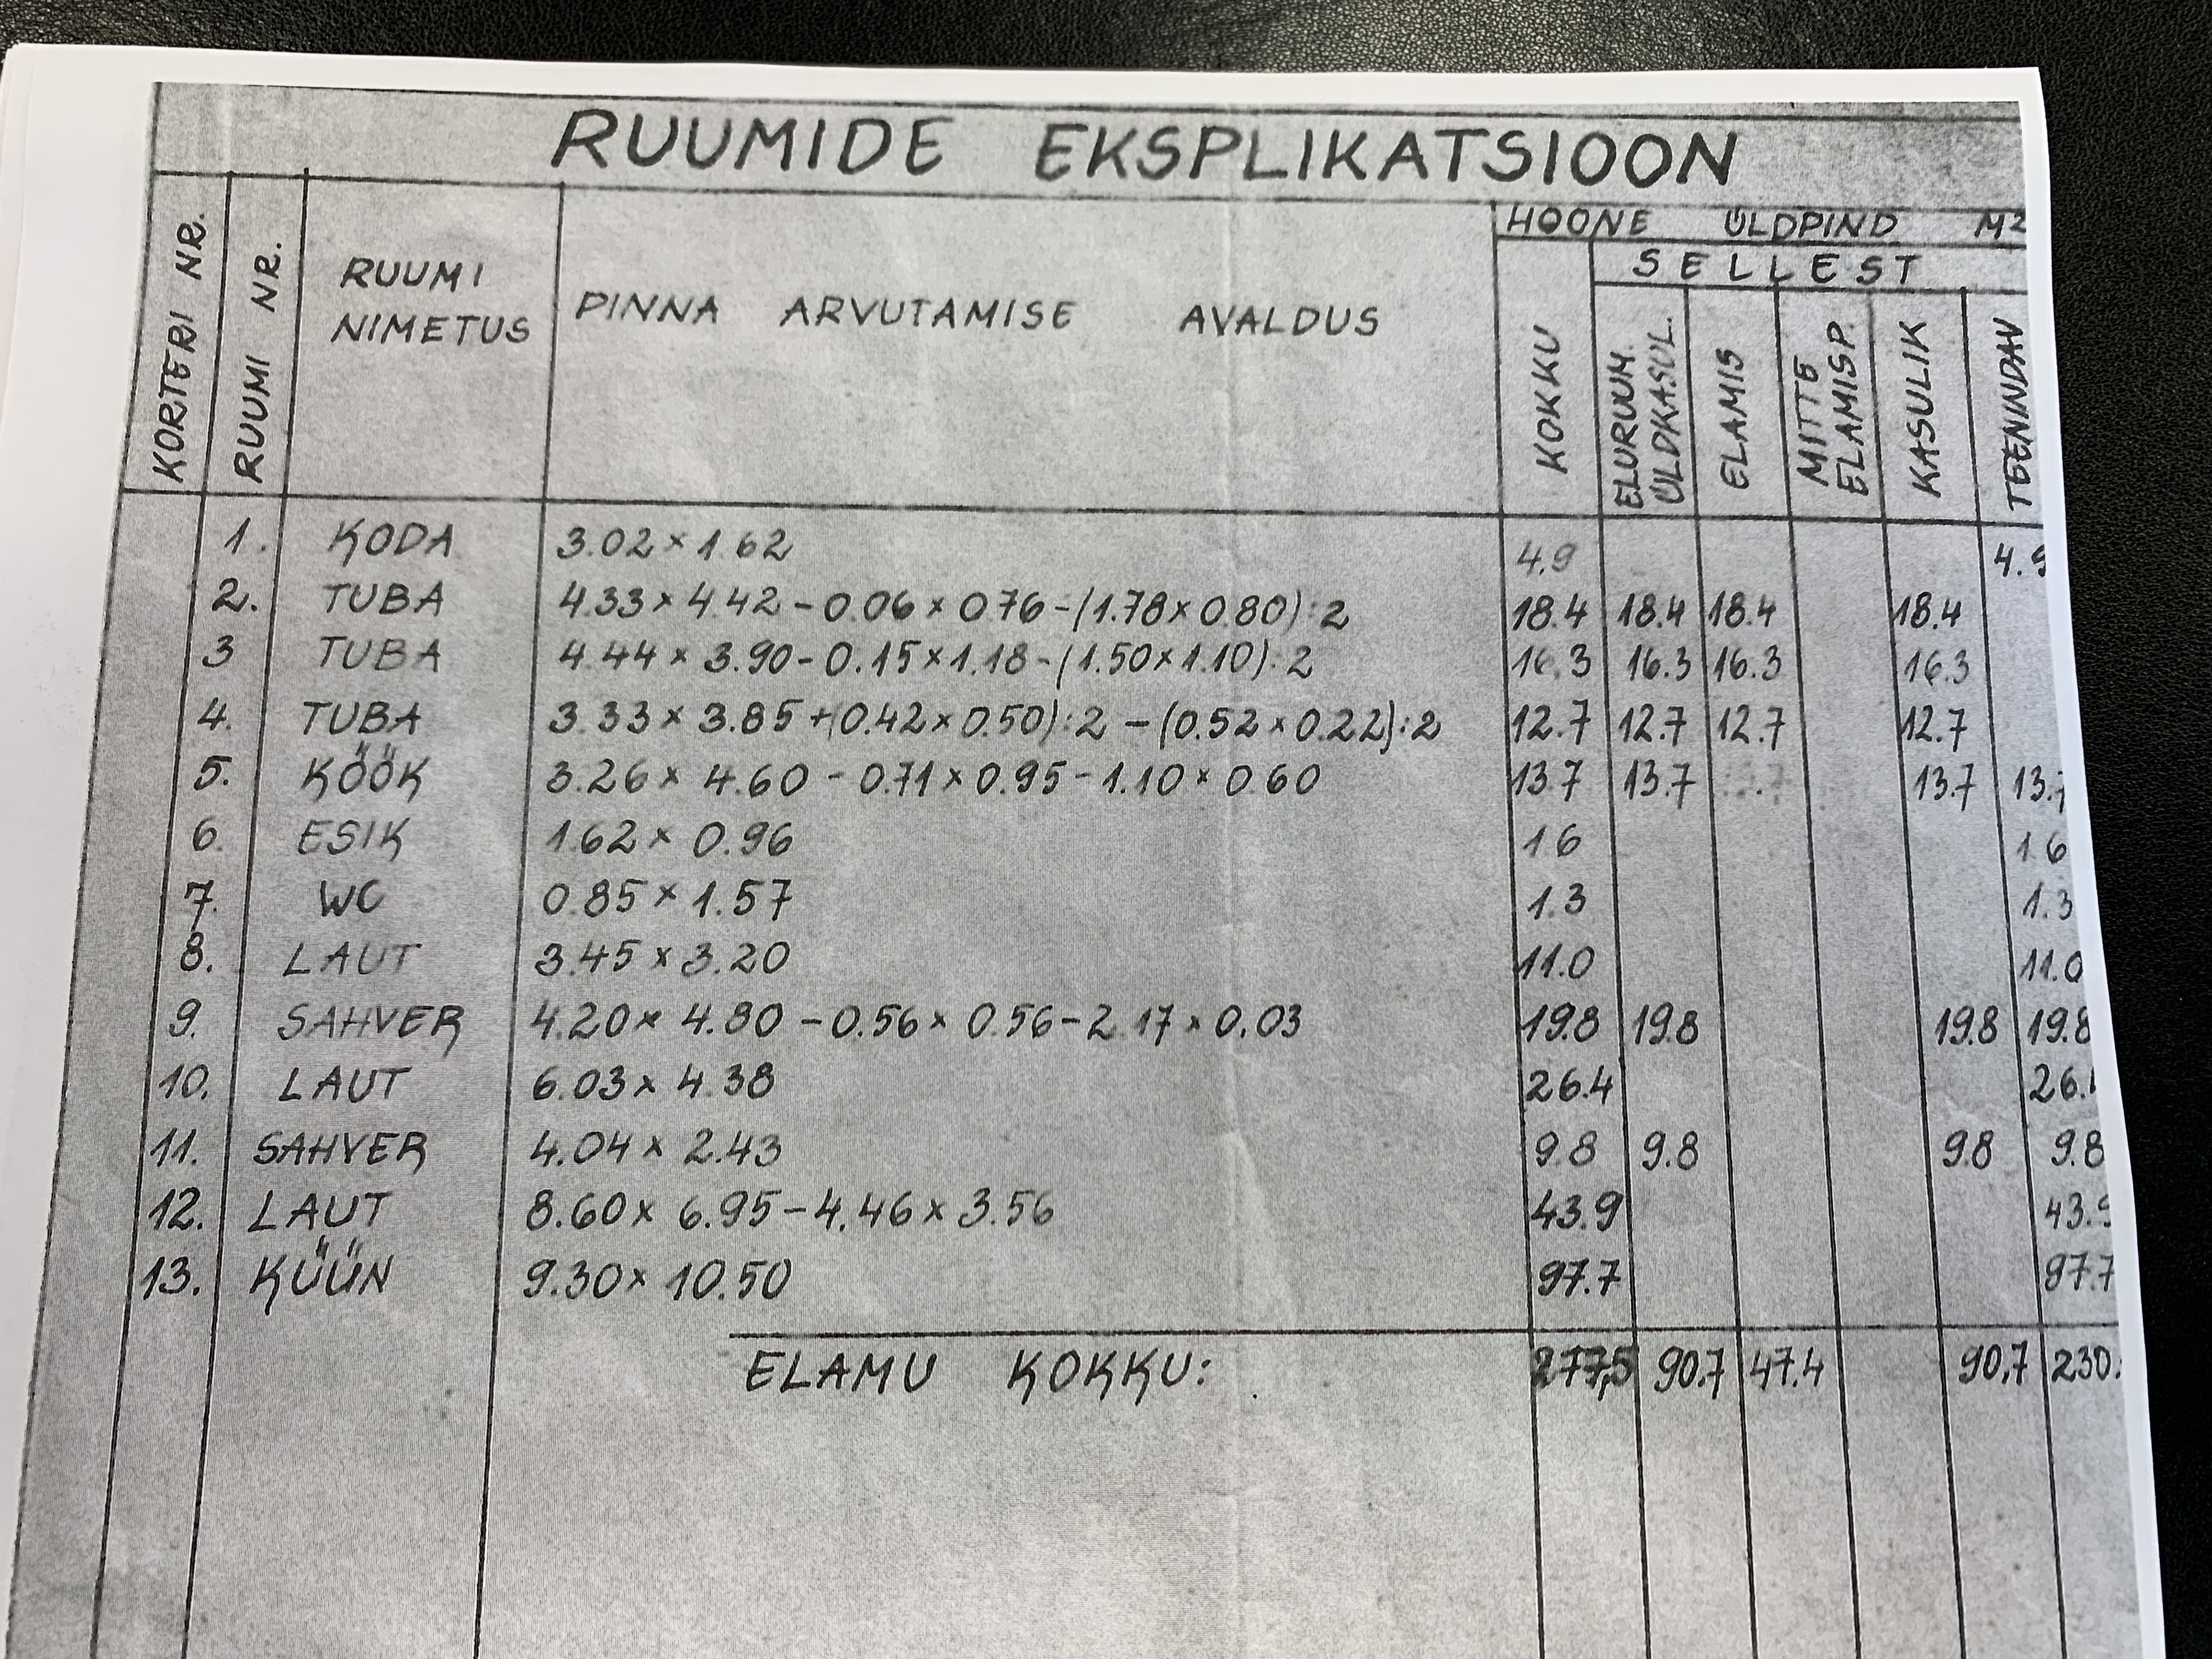 RUUMIDE EKSPLIKATSIOON
KORTERI NR.
RUUMI NR.
RUUMI NIMETUS
PINNA ARVUTAMISE AVALDUS
HOONE ÜLDPIND M2
SELLEST
KOKKU
ELURUUM. ÜLDKASUL.
ELAMIS
MITTE ELAMISP.
KASULIK
TEENINDAV
1. KODA 3.02×1.62 4.9 4.9
2. TUBA 4.33×4.42-0.06×0.76-(1.78×0.80):2 18.4 18.4 18.4 18.4
3 TUBA 4.44×3.90-0.15×1.18-(1.50×1.10):2 16.3 16.3 16.3 16.3
4. TUBA 3.33×3.85+(0.42×0.50):2-(0.52×0.22):2 12.7 12.7 12.7 12.7
5. KÖÖK 3.26×4.60-0.71×0.95-1.10×0.60 13.7 13.7 13.7 13.7
6. ESIK 1.62×0.96 1.6 1.6
7. WC 0.85×1.57 1.3 1.3
8. LAUT 3.45×3.20 11.0 11.0
9. SAHVER 4.20×4.80-0.56×0.56-2.17×0.03 19.8 19.8 19.8 19.8
10. LAUT 6.03×4.38 26.4 26.4
11. SAHVER 4.04×2.43 9.8 9.8 9.8 9.8
12. LAUT 8.60×6.95-4.46×3.56 43.9 43.9
13. KÜÜN 9.30×10.50 97.7 97.7
ELAMU KOKKU: 277,5 90.7 47.4 90,7 230.